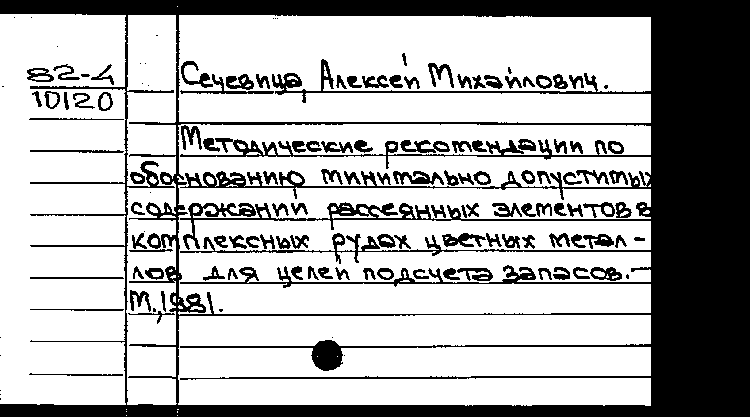 82-4
10120
Сечевица, Алексей Михайлович.
Методические рекомендации по
обоснованию минимально допустимых
содержаний рассеянных элементов в
комплексных рудах цветных метал-
лов для целей подсчета запасов.—
М., 1981.